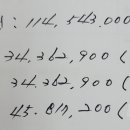 : 114,543,000
34.362,900 (
34.362,900 (
45.817,200 (